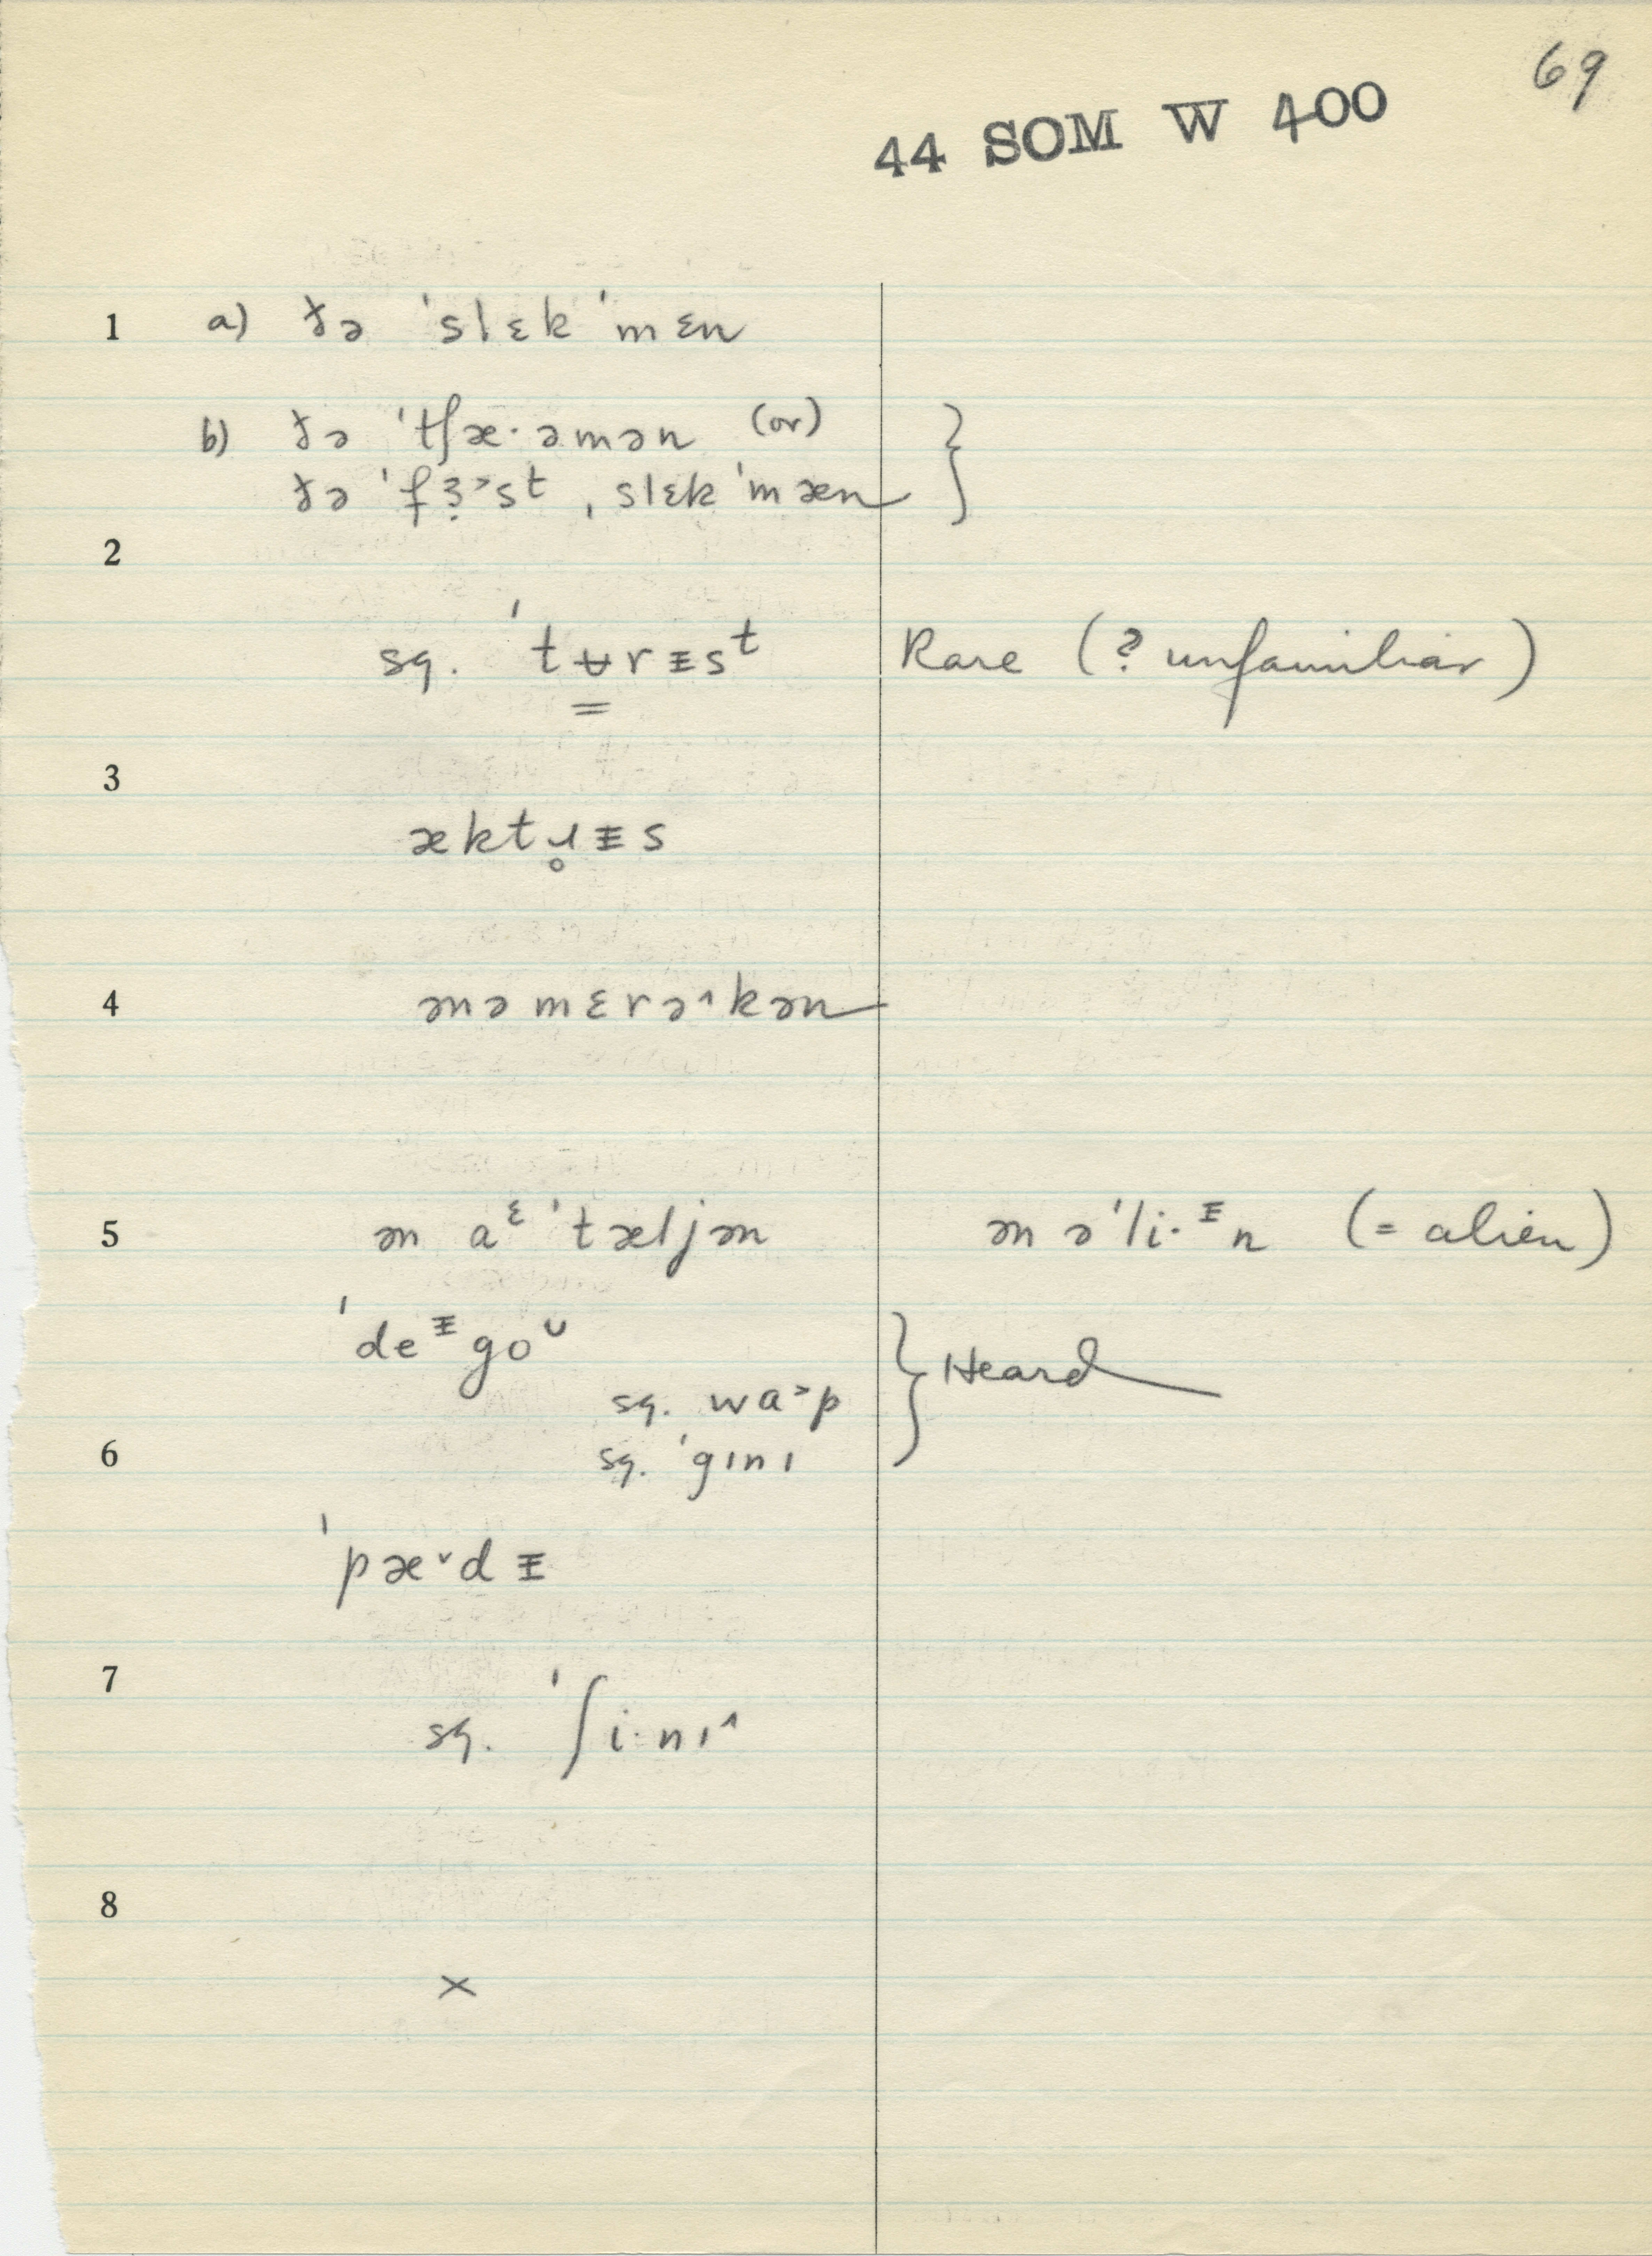 69
44 SOM W 400
1 a) ðə ˈslɛkˈmɛn
b) ðə ˈtʃæ·əmən (or) }
ðə ˈfɜ̣˃st ˌslɛkˈmæn
2
sq. ˈtʉrᵻsᵗ Rare (? unfamiliar)
3
æktɹ̥ᵻs
4 ənəmɛrə˄kən
5 ən aᵋˈtæljən ən əˈli·ᵻn (= alien)
ˈdeᵻgoᴜ } Heard
sq. wa˃p
6 sq. ˈgɪnɪ
ˈpæ˅dᵻ
7
sq. ˈʃi·nɪ˄
8
×